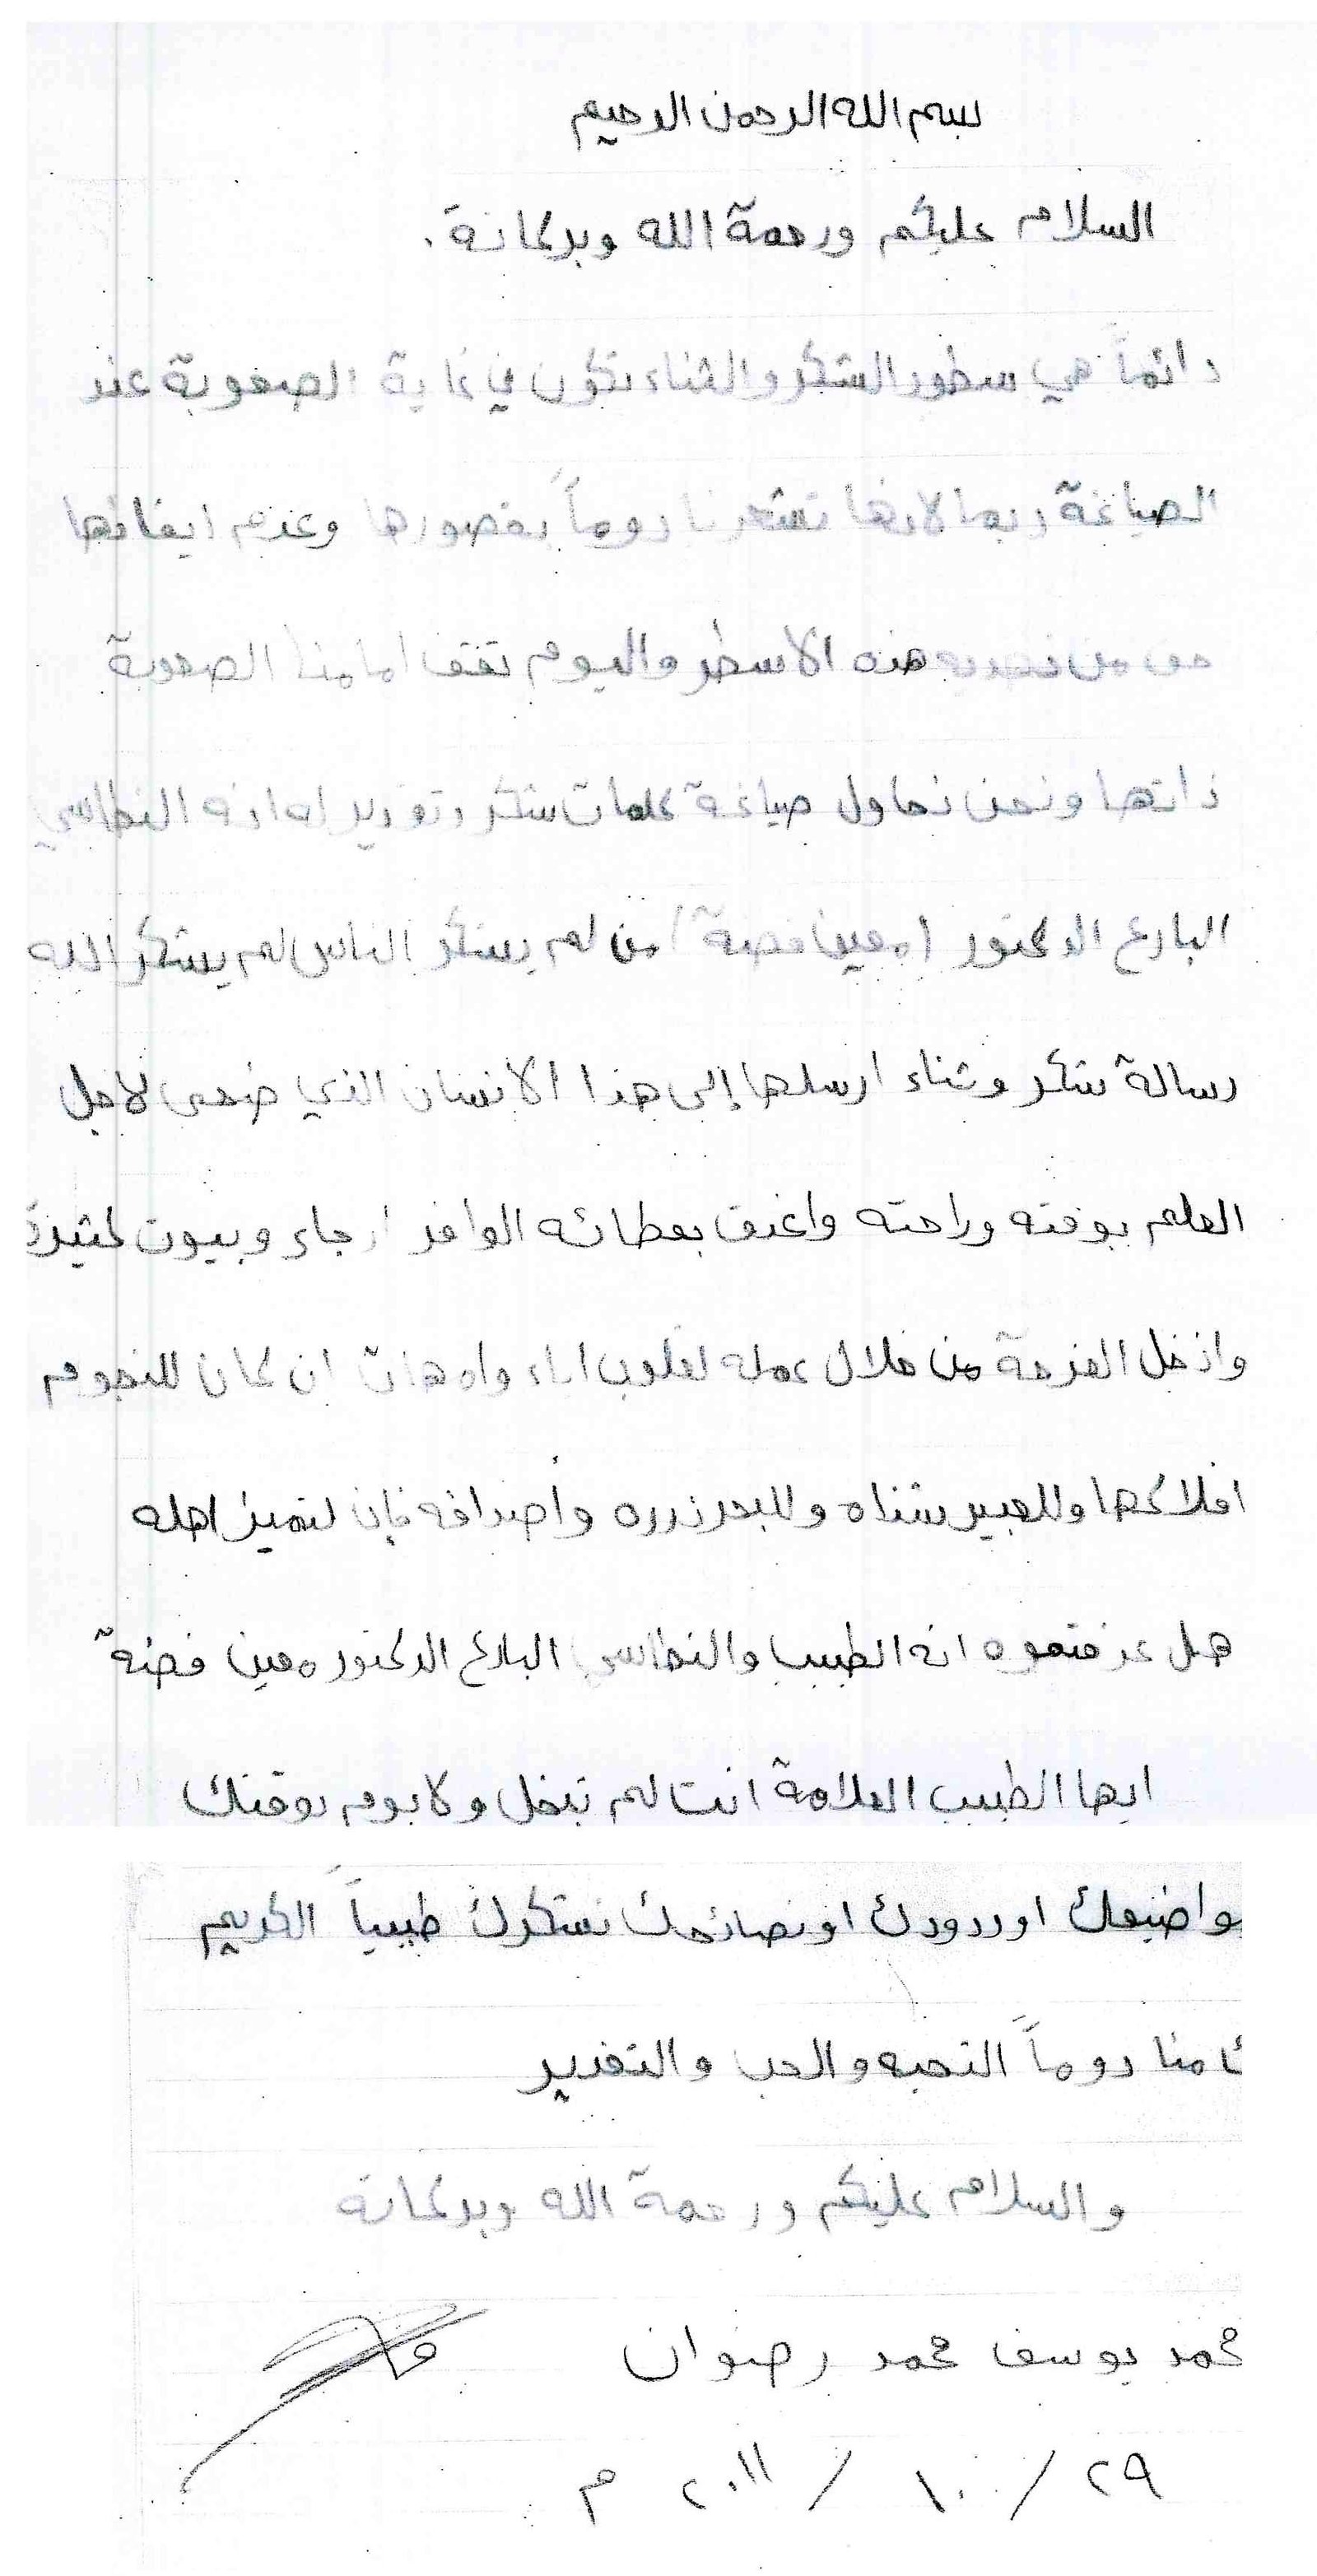 بسم الله الرحمن الرحيم
السلام عليكم ورحمة الله وبركاتة .
دائماً هي سطور الشكر والثناء تكون في غاية الصعوبة عند
الصياغة ربما لانها تشعرنا دوماً بقصورها وعدم ايفائها
حق من نهديه هذه الاسطر واليوم تقف امامنا الصعوبة
ذاتها ونحن نحاول صياغة كلمات شكر وتقدير له انه النطاسي
البارع الدكتور (معين فضة) من لم يشكر الناس لم يشكر الله
رسالة شكر وثناء ارسلها إلى هذا الانسان الذي ضحى لاجل
العلم بوقته وراحته واغدق بعطائه الوافر ارجاء وبيوت كثيرة
وادخل الفرحة من خلال عمله لقلوب اباء وامهات ان كان للنجوم
افلاكها وللعبير شذاه وللبحر درره وأصدافه فإن لتميز اهله
هل عرفتموه انه الطبيب والنطاسي البارع الدكتور معين فضة
ايها الطبيب العلامة انت لم تبخل ولا يوم بوقتك
مواضيعك او ردودك او نصائحك نشكرك طبيباً الكريم
منا دوماً التحيه والحب والتقدير
والسلام عليكم ورحمة الله وبركاته
محمد يوسف محمد رضوان
٢٩ / ١٠ / ٢٠١١ م